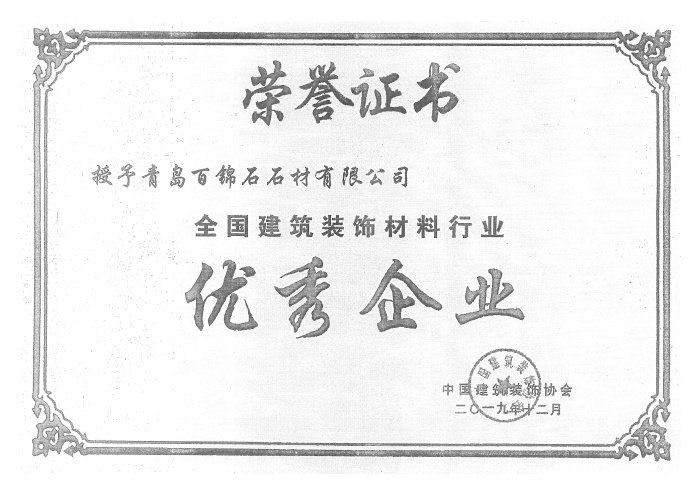 荣誉证书
授予青岛百锦石石材有限公司
全国建筑装饰材料行业
优秀企业
中国建筑装饰协会
二〇一九年十二月